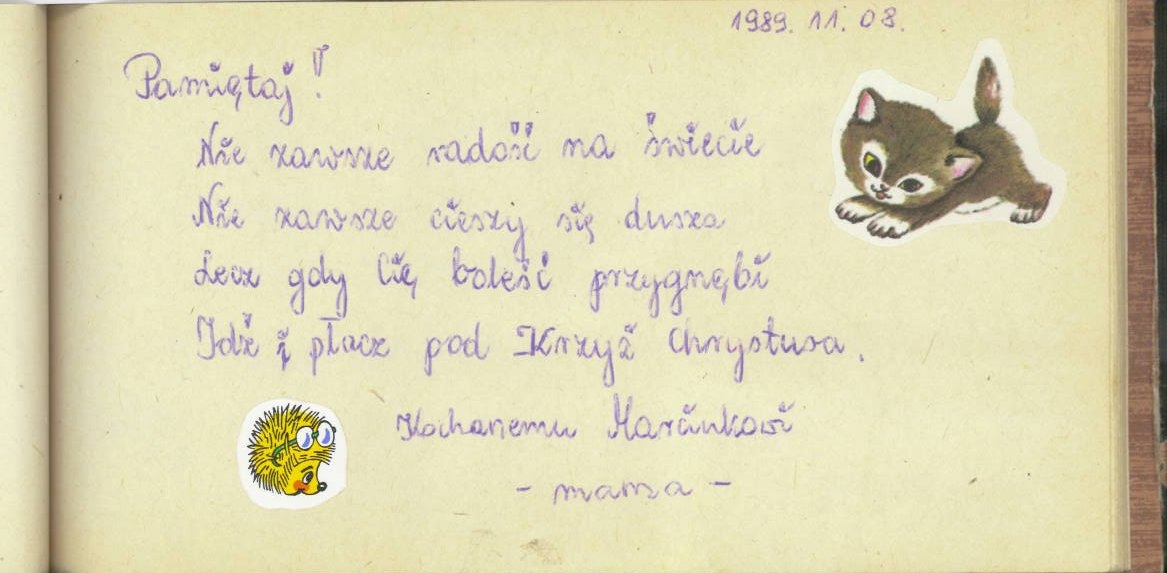 1989. 11. 08.
Pamiętaj!
Nie zawsze radość na świecie
Nie zawsze cieszy się dusza
Lecz gdy Cię boleść przygnębi
Idź i płacz pod Krzyż Chrystusa.
Kochanemu Marcinkowi
- mama -